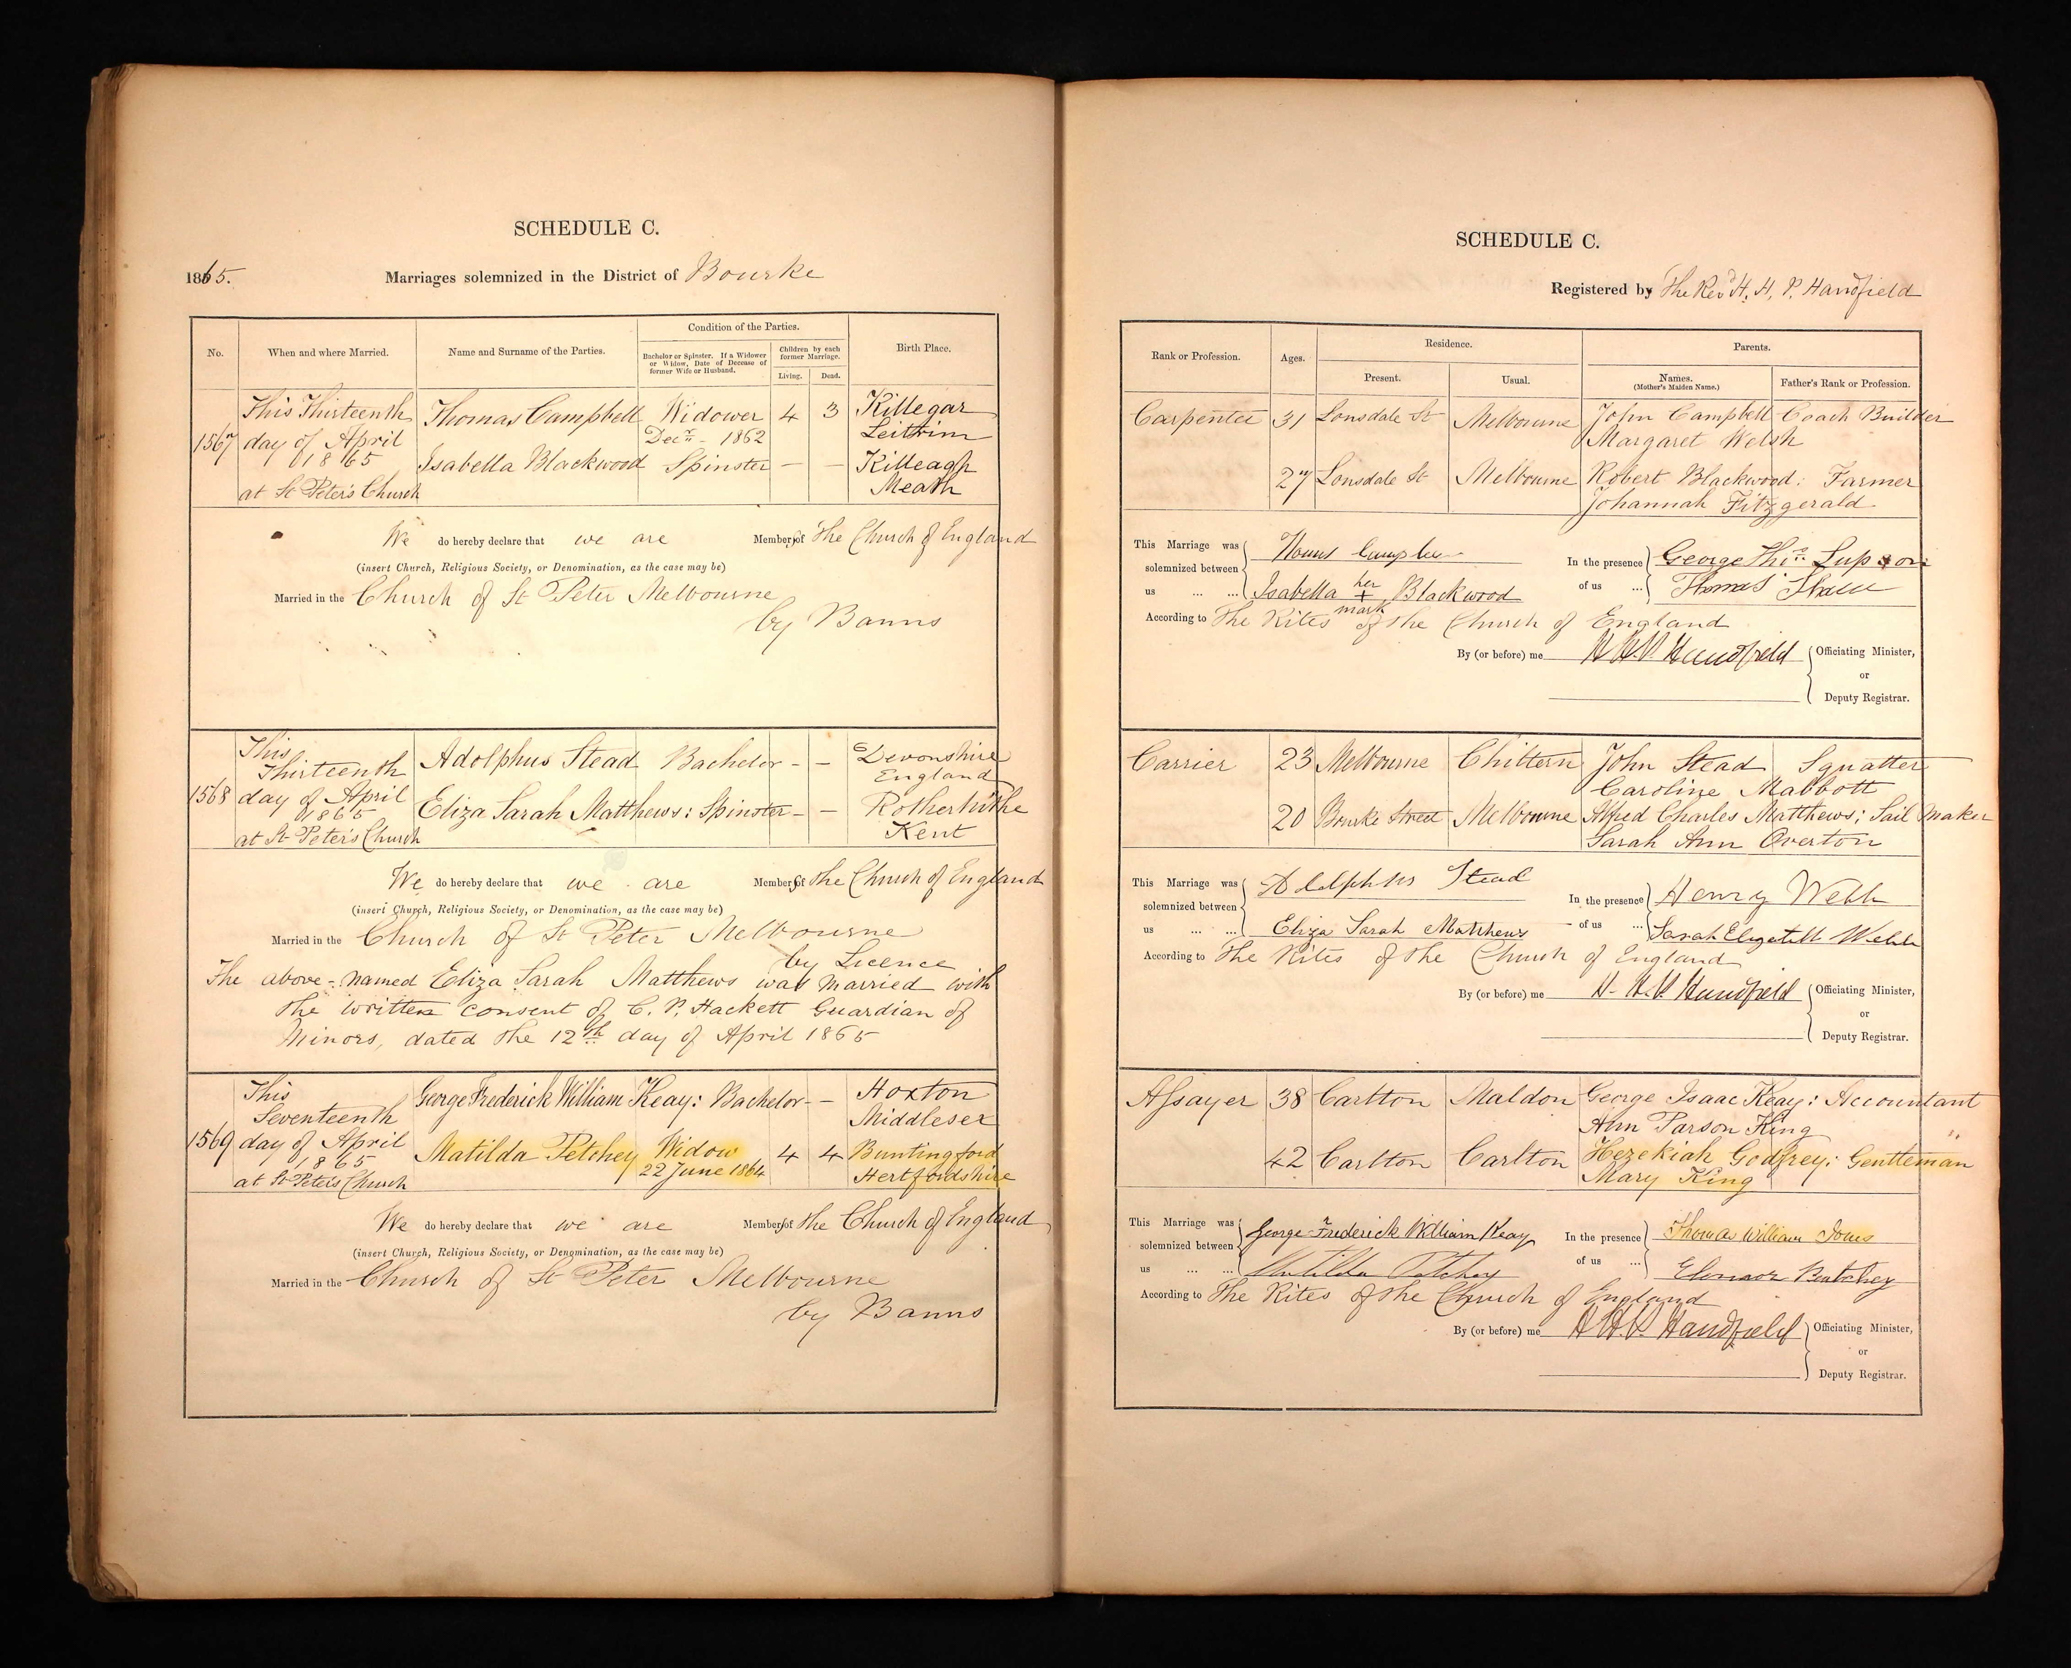 SCHEDULE C.
1865.
Marriages solemnized in the District of Bourke
No.
When and where Married.
Name and Surname of the Parties.
Condition of the Parties.
Bachelor or Spinster. If a Widower
or Widow, Date of Decease of
former Wife or Husband.
Children by each
former Marriage.
Living.
Dead.
Birth Place.
1567
This Thirteenth
day of April
1865
at St Peter's Church
Thomas Campbell Widower 4 3 Killegar
Decr - 1862 Leitrim
Isabella Blackwood Spinster — — Killeagh
Meath
We do hereby declare that we are Members of The Church of England
(insert Church, Religious Society, or Denomination, as the case may be)
Married in the Church of St Peter Melbourne
by Banns
1568
This
Thirteenth
day of April
1865
at St Peter's Church
Adolphus Stead Bachelor - - Devonshire
England
Eliza Sarah Matthews: Spinster - - Rotherhithe
Kent
We do hereby declare that we are Members of The Church of England
(insert Church, Religious Society, or Denomination, as the case may be)
Married in the Church of St Peter Melbourne
by Licence
The above-named Eliza Sarah Matthews was married with
the written consent of C. P. Hackett Guardian of
Minors, dated the 12th day of April 1865
1569
This
Seventeenth
day of April
1865
at St Peter's Church
George Frederick William Keay: Bachelor - - Hoxton
Middlesex
Matilda Petchey Widow 4 4 Buntingford
22 June 1864 Hertfordshire
We do hereby declare that we are Members of The Church of England
(insert Church, Religious Society, or Denomination, as the case may be)
Married in the Church of St Peter Melbourne
by Banns
SCHEDULE C.
Registered by The Revd H. H. P. Handfield
Rank or Profession.
Ages.
Residence.
Present.
Usual.
Parents.
Names.
(Mother's Maiden Name.)
Father's Rank or Profession.
Carpenter 31 Lonsdale St Melbourne John Campbell Coach Builder
Margaret Welsh
27 Lonsdale St Melbourne Robert Blackwood: Farmer
Johannah Fitzgerald
This Marriage was
solemnized between
us ... ...
Isabella her + mark Blackwood
In the presence
of us ...
George
Thomas
According to The Rites of the Church of England
By (or before) me H. H. P. Handfield
Officiating Minister,
or
Deputy Registrar.
Carrier 23 Melbourne Chiltern John Stead Squatter
Caroline Mabbott
20 Bourke Street Melbourne Alfred Charles Matthews; Sail Maker
Sarah Ann Overton
This Marriage was
solemnized between
us ... ...
Adolphus Stead
Eliza Sarah Matthews
In the presence
of us ...
Henry Webb
Sarah Elizabeth Webb
According to The Rites of the Church of England
By (or before) me H. H. P. Handfield
Officiating Minister,
or
Deputy Registrar.
Assayer 38 Carlton Maldon George Isaac Keay: Accountant
Ann Parson King "
42 Carlton Carlton Hezekiah Godfrey: Gentleman
Mary King
This Marriage was
solemnized between
us ... ...
George Frederick William Keay
Matilda Petchey
In the presence
of us ...
Thomas William Jones
Eleanor
According to The Rites of the Church of England
By (or before) me H. H. P. Handfield
Officiating Minister,
or
Deputy Registrar.